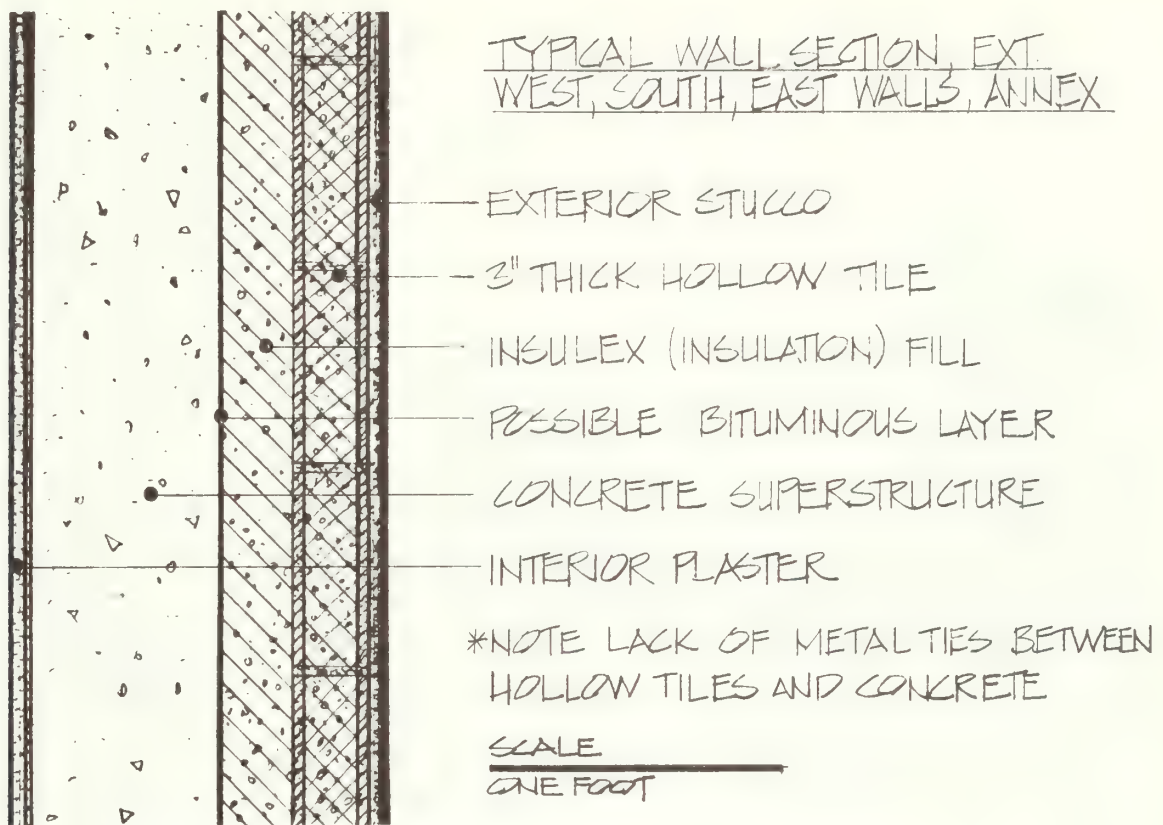 TYPICAL WALL SECTION, EXT.
WEST, SOUTH, EAST WALLS, ANNEX
EXTERIOR STUCCO
3" THICK HOLLOW TILE
INSULEX (INSULATION) FILL
POSSIBLE BITUMINOUS LAYER
CONCRETE SUPERSTRUCTURE
INTERIOR PLASTER
*NOTE LACK OF METAL TIES BETWEEN
HOLLOW TILES AND CONCRETE
SCALE
ONE FOOT